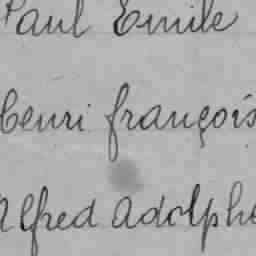 Paul Emile
Henri françois
Alfred Adolphe